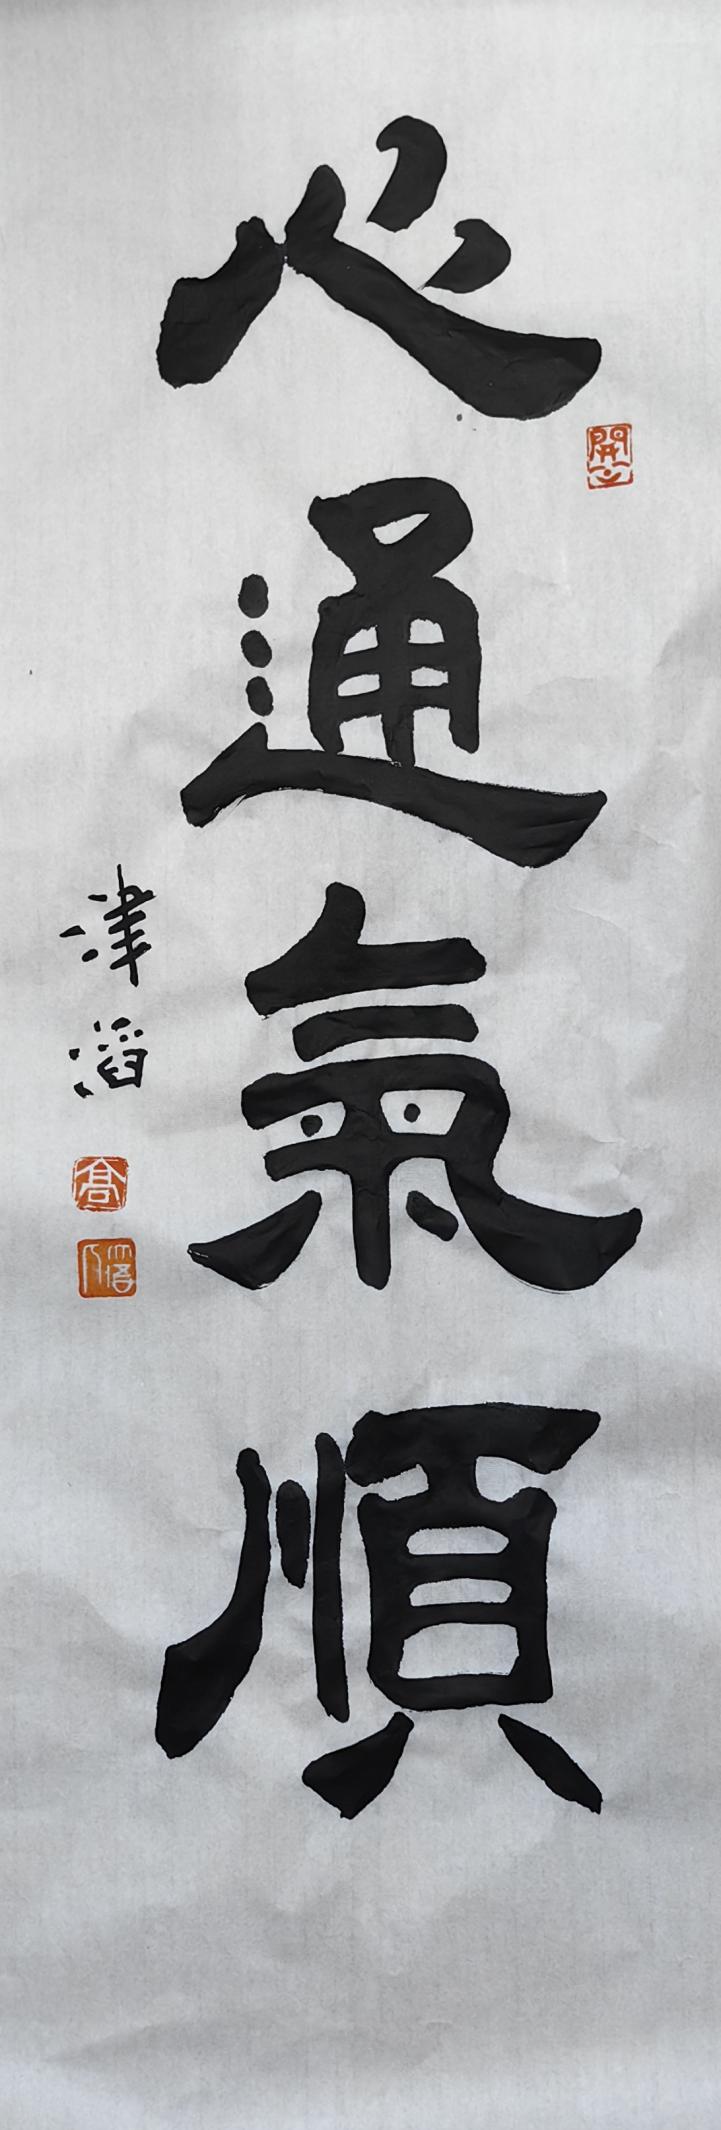 心通氣順
津滔
高